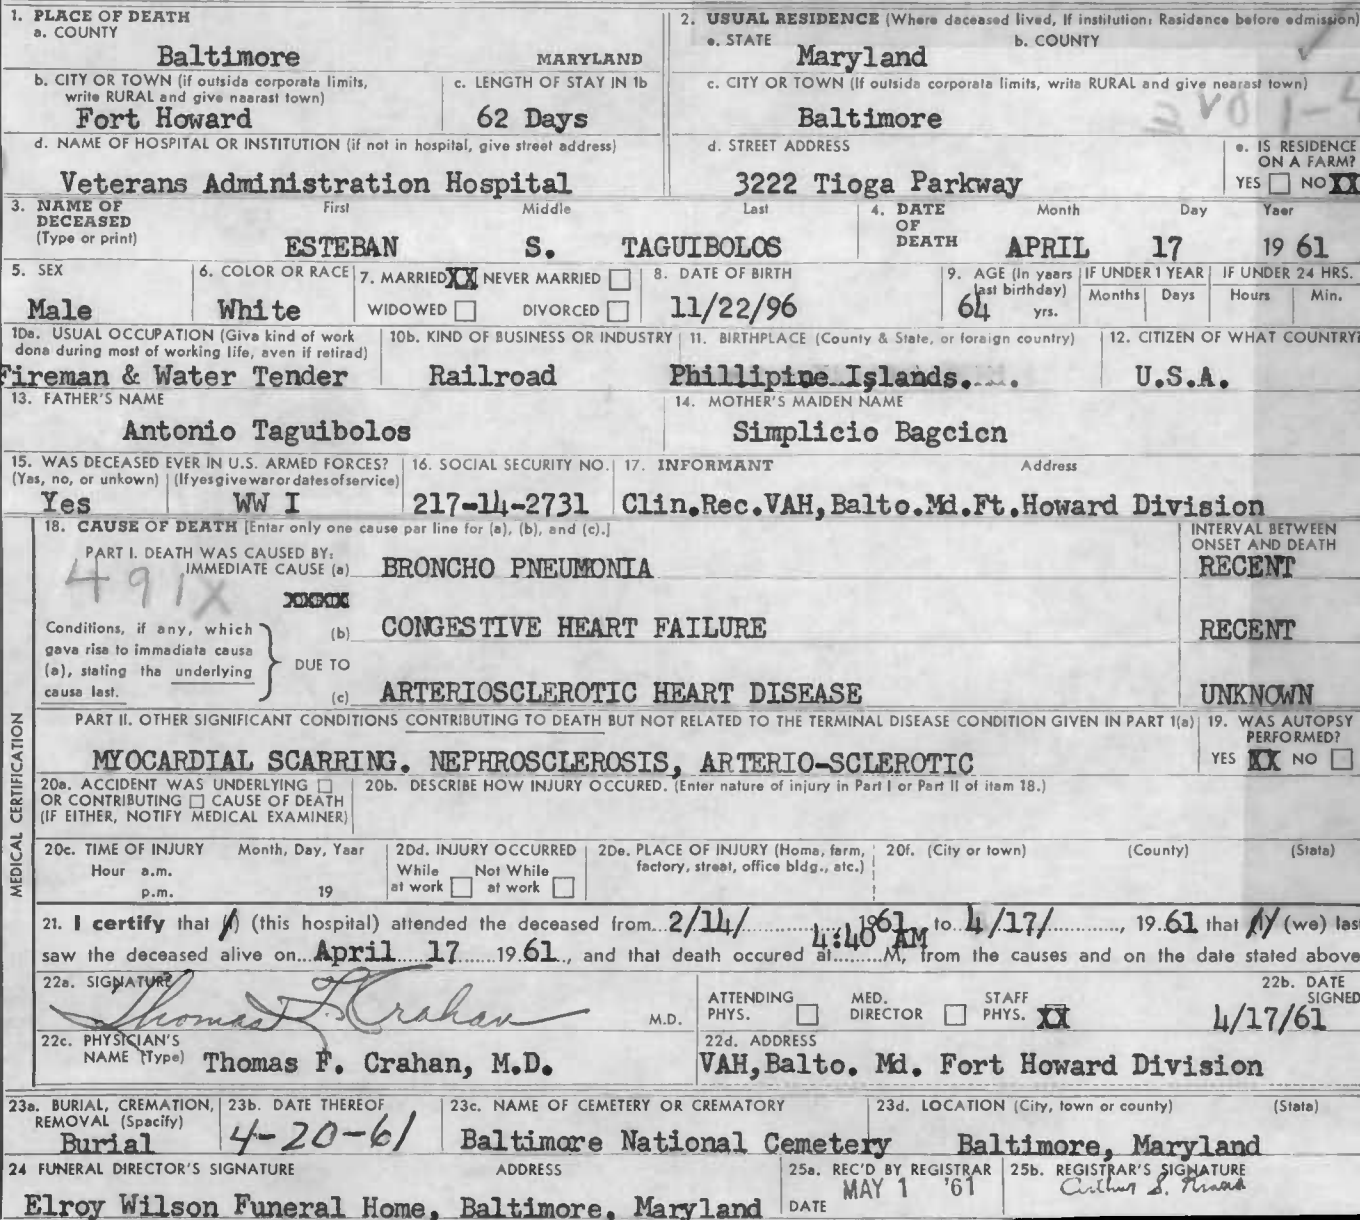 1. PLACE OF DEATH
a. COUNTY
Baltimore MARYLAND
2. USUAL RESIDENCE (Where deceased lived, If institution: Residence before admission)
a. STATE b. COUNTY
Maryland
b. CITY OR TOWN (if outside corporate limits, write RURAL and give nearest town)
Fort Howard
c. LENGTH OF STAY IN 1b
62 Days
c. CITY OR TOWN (If outside corporate limits, write RURAL and give nearest town)
Baltimore
d. NAME OF HOSPITAL OR INSTITUTION (if not in hospital, give street address)
Veterans Administration Hospital
d. STREET ADDRESS
3222 Tioga Parkway
e. IS RESIDENCE ON A FARM?
YES NO XX
3. NAME OF DECEASED (Type or print)
First Middle Last
ESTEBAN S. TAGUIBOLOS
4. DATE OF DEATH
Month Day Year
APRIL 17 19 61
5. SEX
Male
6. COLOR OR RACE
White
7. MARRIED XX NEVER MARRIED
WIDOWED DIVORCED
8. DATE OF BIRTH
11/22/96
9. AGE (In years last birthday)
64 yrs.
IF UNDER 1 YEAR
Months Days
IF UNDER 24 HRS.
Hours Min.
10a. USUAL OCCUPATION (Give kind of work done during most of working life, even if retired)
Fireman & Water Tender
10b. KIND OF BUSINESS OR INDUSTRY
Railroad
11. BIRTHPLACE (County & State, or foreign country)
Phillipine Islands.
12. CITIZEN OF WHAT COUNTRY?
U.S.A.
13. FATHER'S NAME
Antonio Taguibolos
14. MOTHER'S MAIDEN NAME
Simplicio Bagcicn
15. WAS DECEASED EVER IN U.S. ARMED FORCES?
(Yes, no, or unkown) (If yes give war or dates of service)
Yes WW I
16. SOCIAL SECURITY NO.
217-14-2731
17. INFORMANT Address
Clin.Rec.VAH,Balto.Md.Ft.Howard Division
18. CAUSE OF DEATH [Enter only one cause par line for (a), (b), and (c).]
INTERVAL BETWEEN ONSET AND DEATH
PART I. DEATH WAS CAUSED BY:
IMMEDIATE CAUSE (a) BRONCHO PNEUMONIA RECENT
491X
XXXXX
Conditions, if any, which gave rise to immediate cause (a), stating the underlying cause last.
(b) CONGESTIVE HEART FAILURE RECENT
DUE TO
(c) ARTERIOSCLEROTIC HEART DISEASE UNKNOWN
PART II. OTHER SIGNIFICANT CONDITIONS CONTRIBUTING TO DEATH BUT NOT RELATED TO THE TERMINAL DISEASE CONDITION GIVEN IN PART 1(a)
MYOCARDIAL SCARRING. NEPHROSCLEROSIS, ARTERIO-SCLEROTIC
19. WAS AUTOPSY PERFORMED?
YES XX NO
MEDICAL CERTIFICATION
20a. ACCIDENT WAS UNDERLYING
OR CONTRIBUTING CAUSE OF DEATH
(IF EITHER, NOTIFY MEDICAL EXAMINER)
20b. DESCRIBE HOW INJURY OCCURED. (Enter nature of injury in Part I or Part II of item 18.)
20c. TIME OF INJURY Month, Day, Year
Hour a.m.
p.m. 19
20d. INJURY OCCURRED
While at work Not While at work
20e. PLACE OF INJURY (Home, farm, factory, street, office bldg., etc.)
20f. (City or town) (County) (State)
21. I certify that (I) (this hospital) attended the deceased from 2/14/ 1961 to 4/17/, 19 61 that (I) (we) las
saw the deceased alive on April 17 19 61, and that death occured at 4:40 AM M, from the causes and on the date stated above
22a. SIGNATURE
Thomas F. Crahan M.D.
ATTENDING PHYS. MED. DIRECTOR STAFF PHYS. XX
22b. DATE SIGNED
4/17/61
22c. PHYSICIAN'S NAME (Type) Thomas F. Crahan, M.D.
22d. ADDRESS
VAH,Balto. Md. Fort Howard Division
23a. BURIAL, CREMATION, REMOVAL (Specify)
Burial
23b. DATE THEREOF
4-20-61
23c. NAME OF CEMETERY OR CREMATORY
Baltimore National Cemetery
23d. LOCATION (City, town or county) (State)
Baltimore, Maryland
24 FUNERAL DIRECTOR'S SIGNATURE ADDRESS
Elroy Wilson Funeral Home, Baltimore, Maryland
25a. REC'D BY REGISTRAR
DATE MAY 1 '61
25b. REGISTRAR'S SIGNATURE
Arthur S.